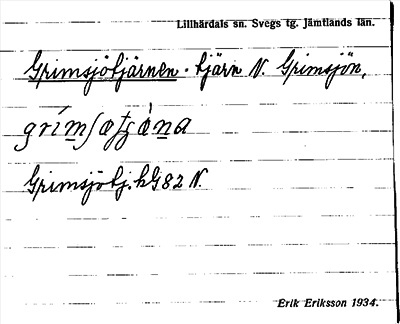 Lillhärdals sn. Svegs tg. Jämtlands län.
Grimsjötjärnen. tjärn N. Grimsjön,
Grimsjötj. hG82 N.
Erik Eriksson 1934.